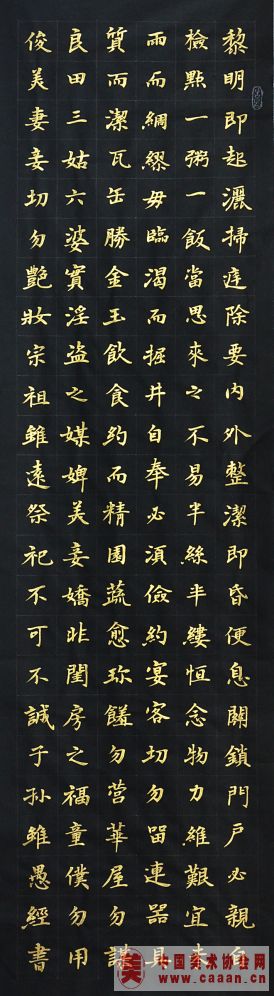 黎明即起灑掃庭除要內外整潔即昏便息關鎖門戶必親自
檢點一粥一飯當思來之不易半絲半縷恒念物力維艱宜未
雨而綢繆毋臨渴而掘井自奉必須儉約宴客切勿留連器具
質而潔瓦缶勝金玉飲食約而精園蔬愈珍饈勿營華屋勿謀
良田三姑六婆實淫盜之媒婢美妾嬌非閨房之福童僕勿用
俊美妻妾切勿艷妝宗祖雖遠祭祀不可不誠子孫雖愚經書
中国美术协会网
www.caaan.cn